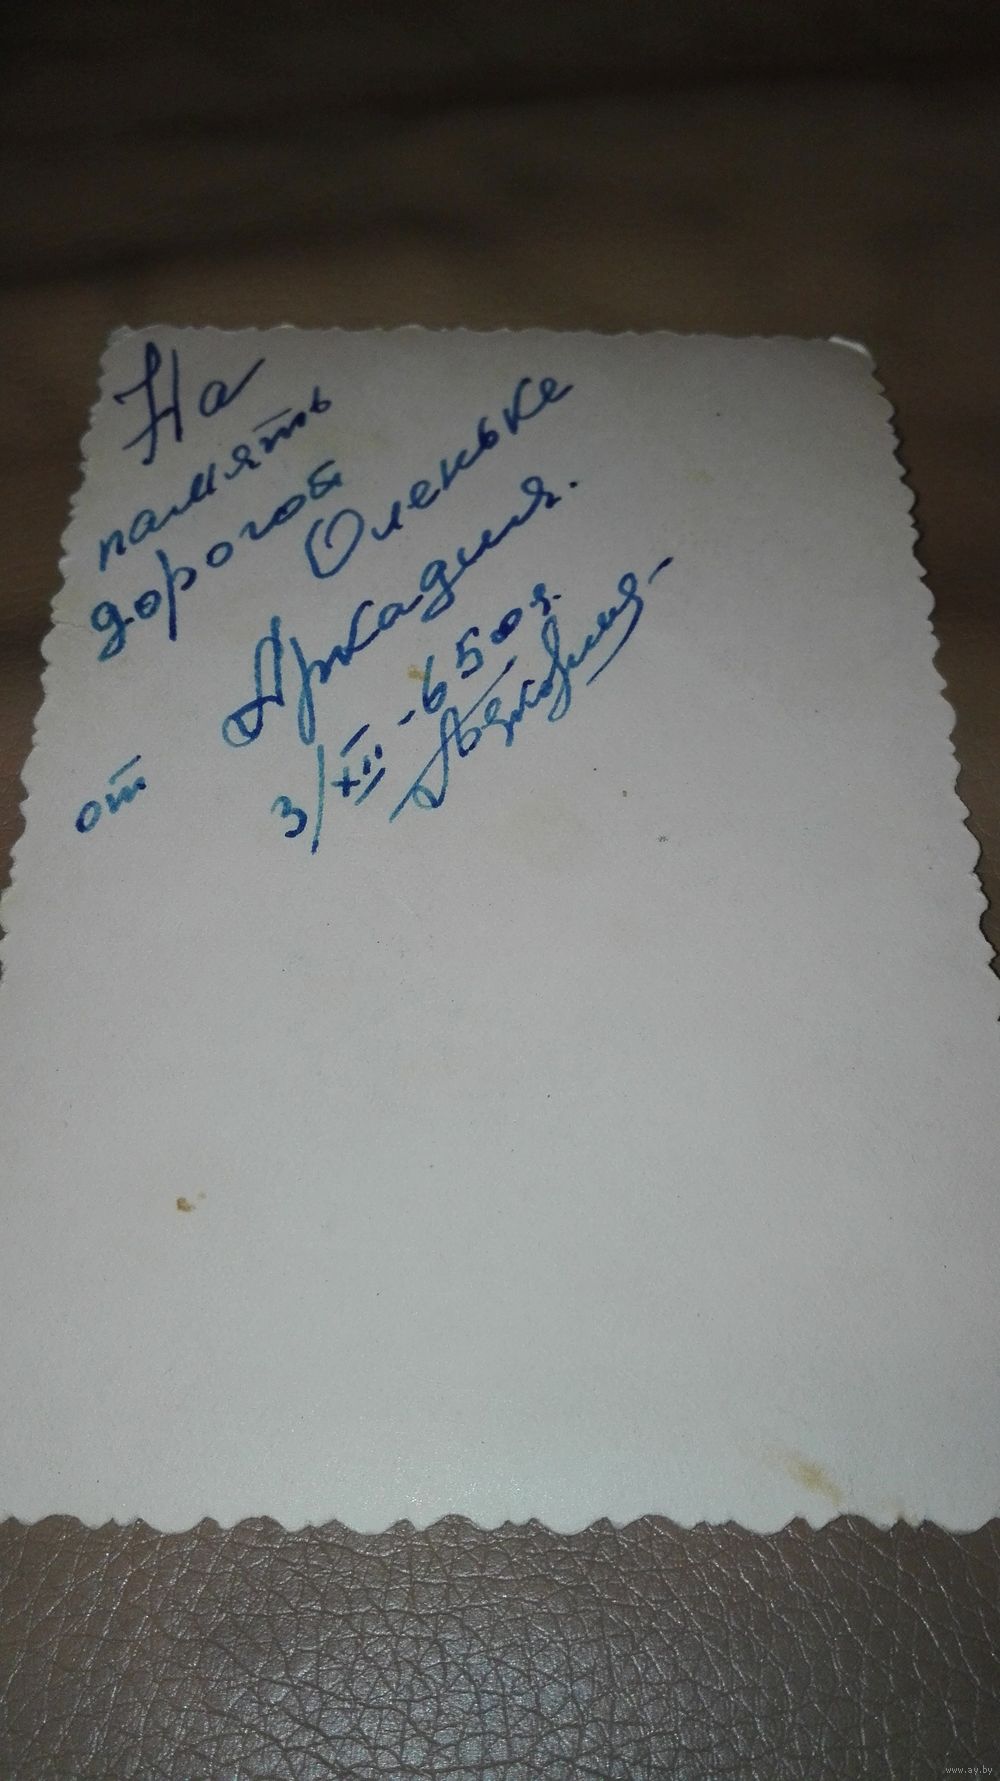 На
память
дорогой
Оленьке
от Аркадия.
3/XII-65
www.ay.by